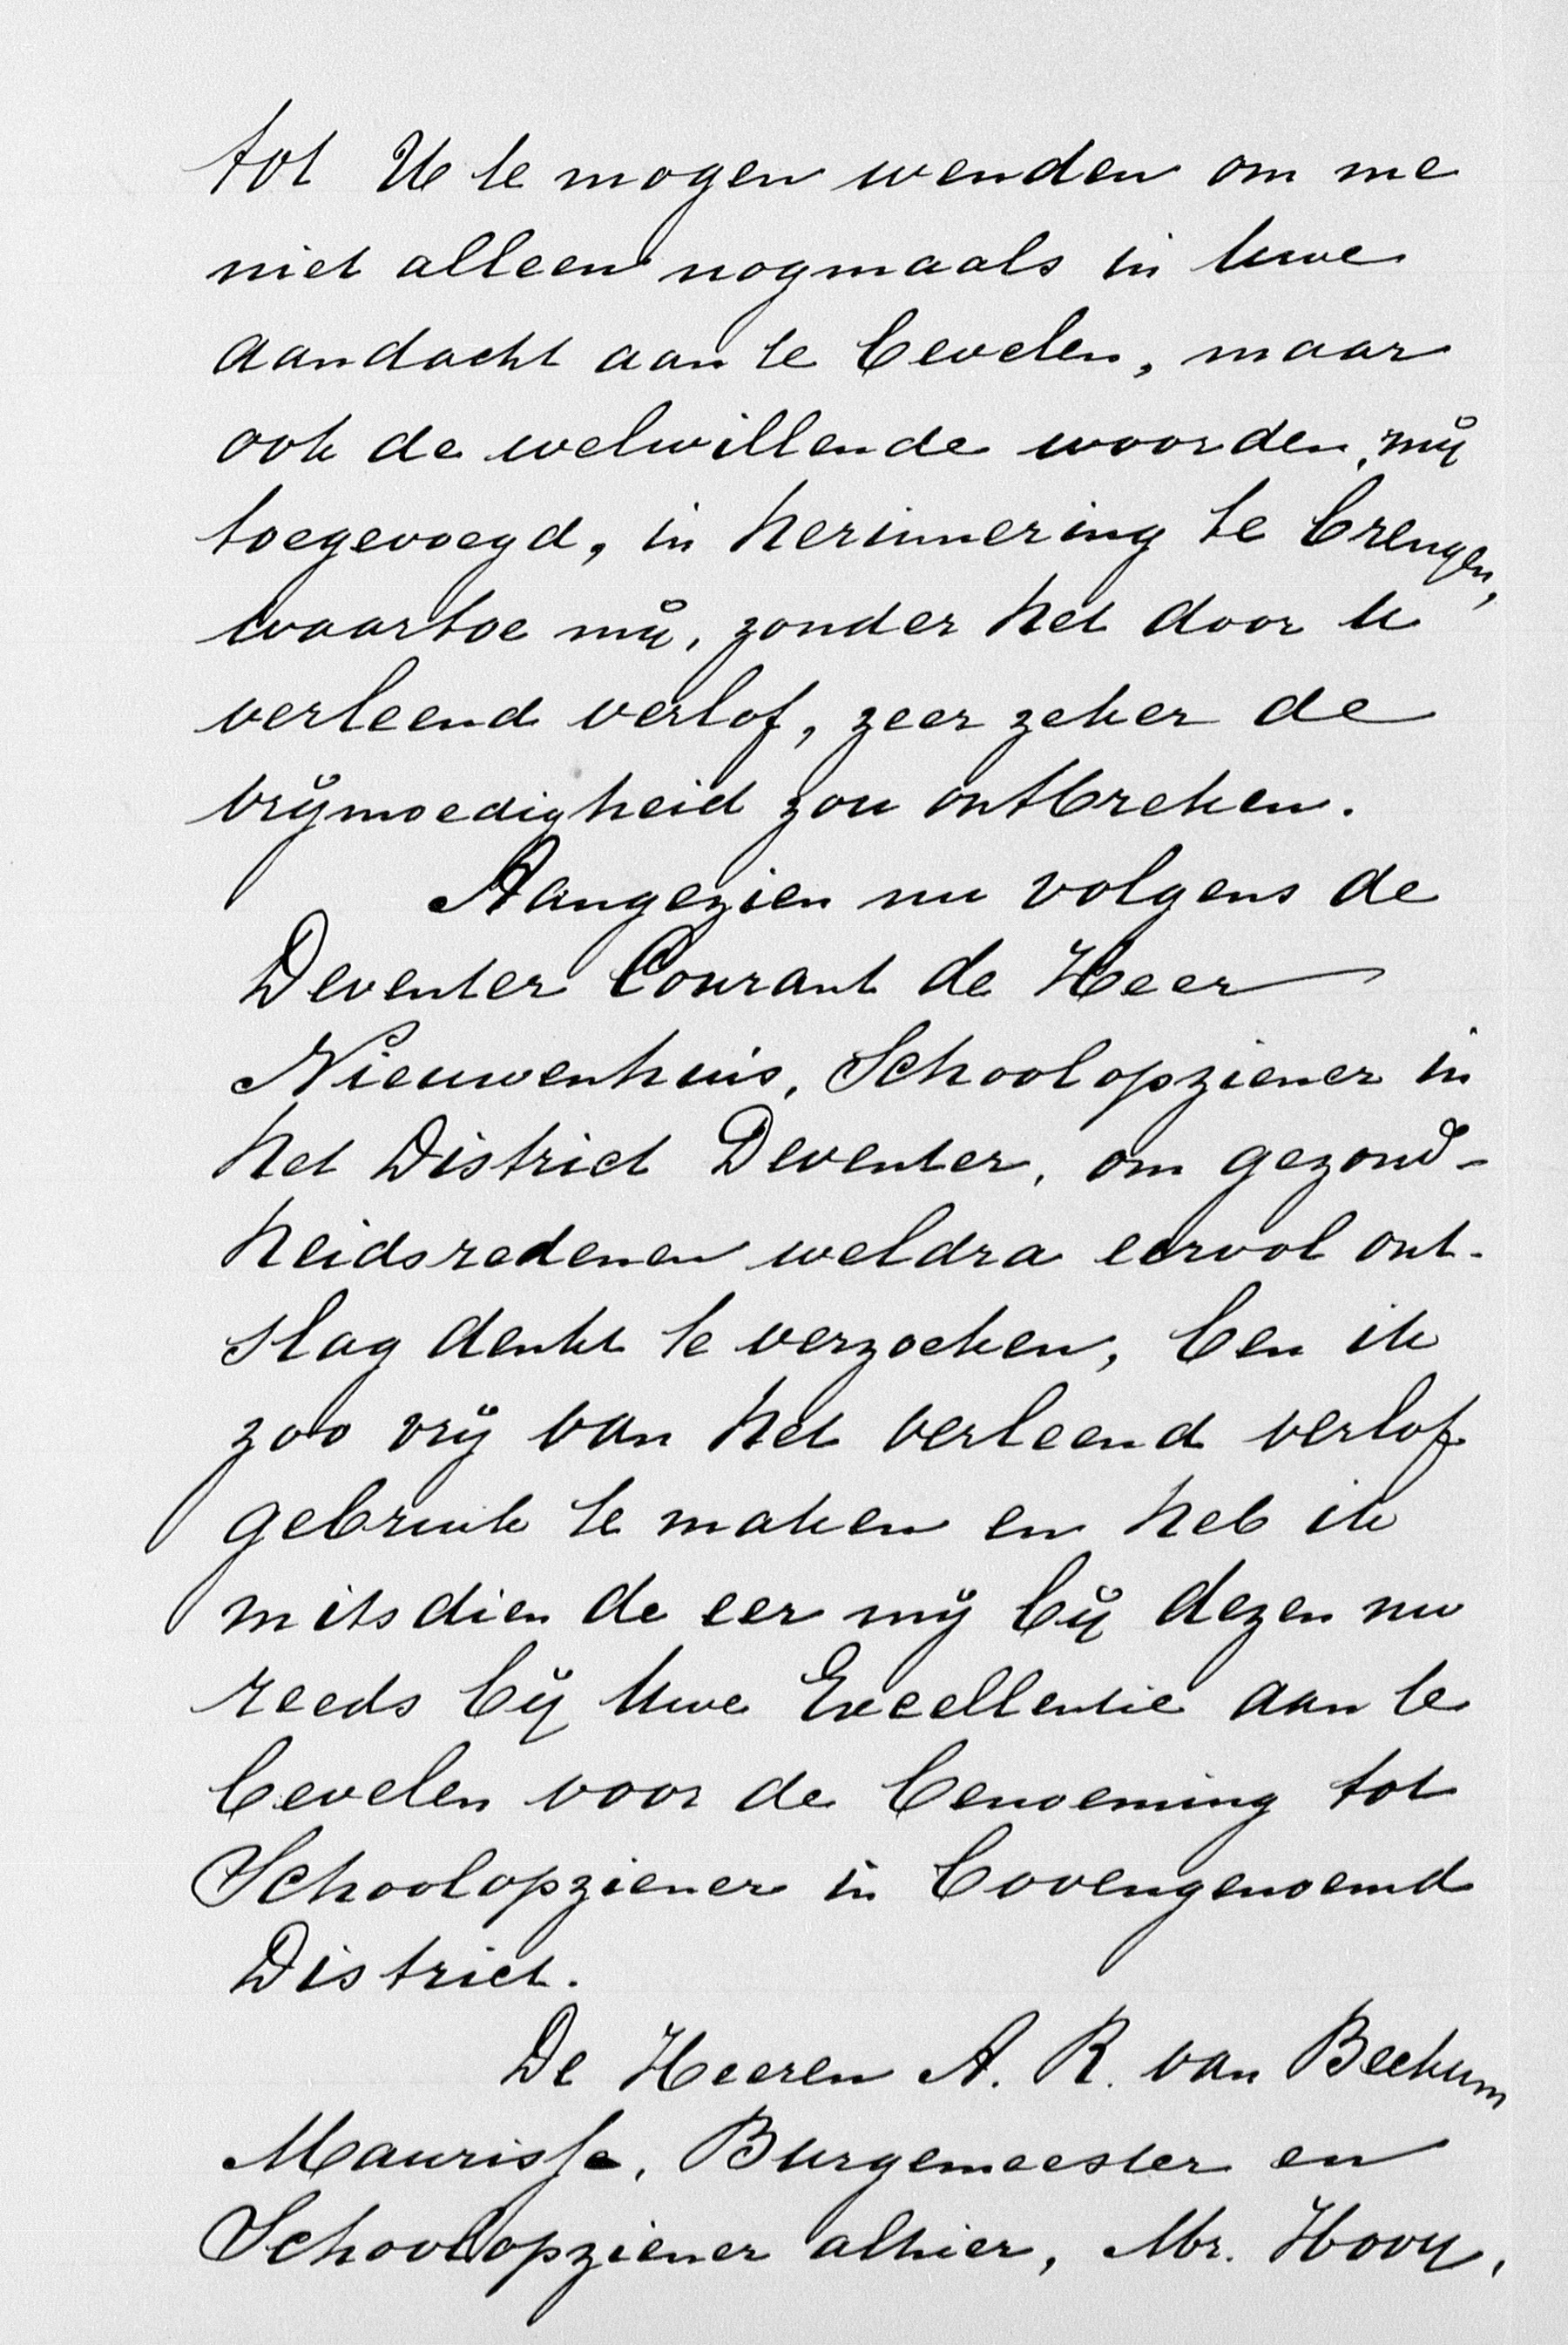 tot U te mogen wenden om me
niet alleen nogmaals in Uwe
aandacht aan te bevelen, maar
ook de welwillende woorden, mij
toegevoegd, in herinnering te brengen,
waartoe mij, zonder het door U
verleend verlof, zeer zeker de
vrijmoedigheid zou ontbreken.
Aangezien nu volgens de
Deventer Courant de Heer
Nieuwenhuis, Schoolopziener in
het District Deventer, om gezond-
heidsredenen weldra eervol ont-
slag denkt te verzoeken, ben ik
zoo vrij van het verleend verlof
gebruik te maken en heb ik
mitsdien de eer mij bij dezen nu
reeds bij Uwe Excellentie aan te
bevelen voor de benoeming tot
Schoolopziener in bovengenoemd
District.
De Heeren A. R. van Beekum
Maurisse, Burgemeester en
Schoolopziener alhier, Mr. Hooy,